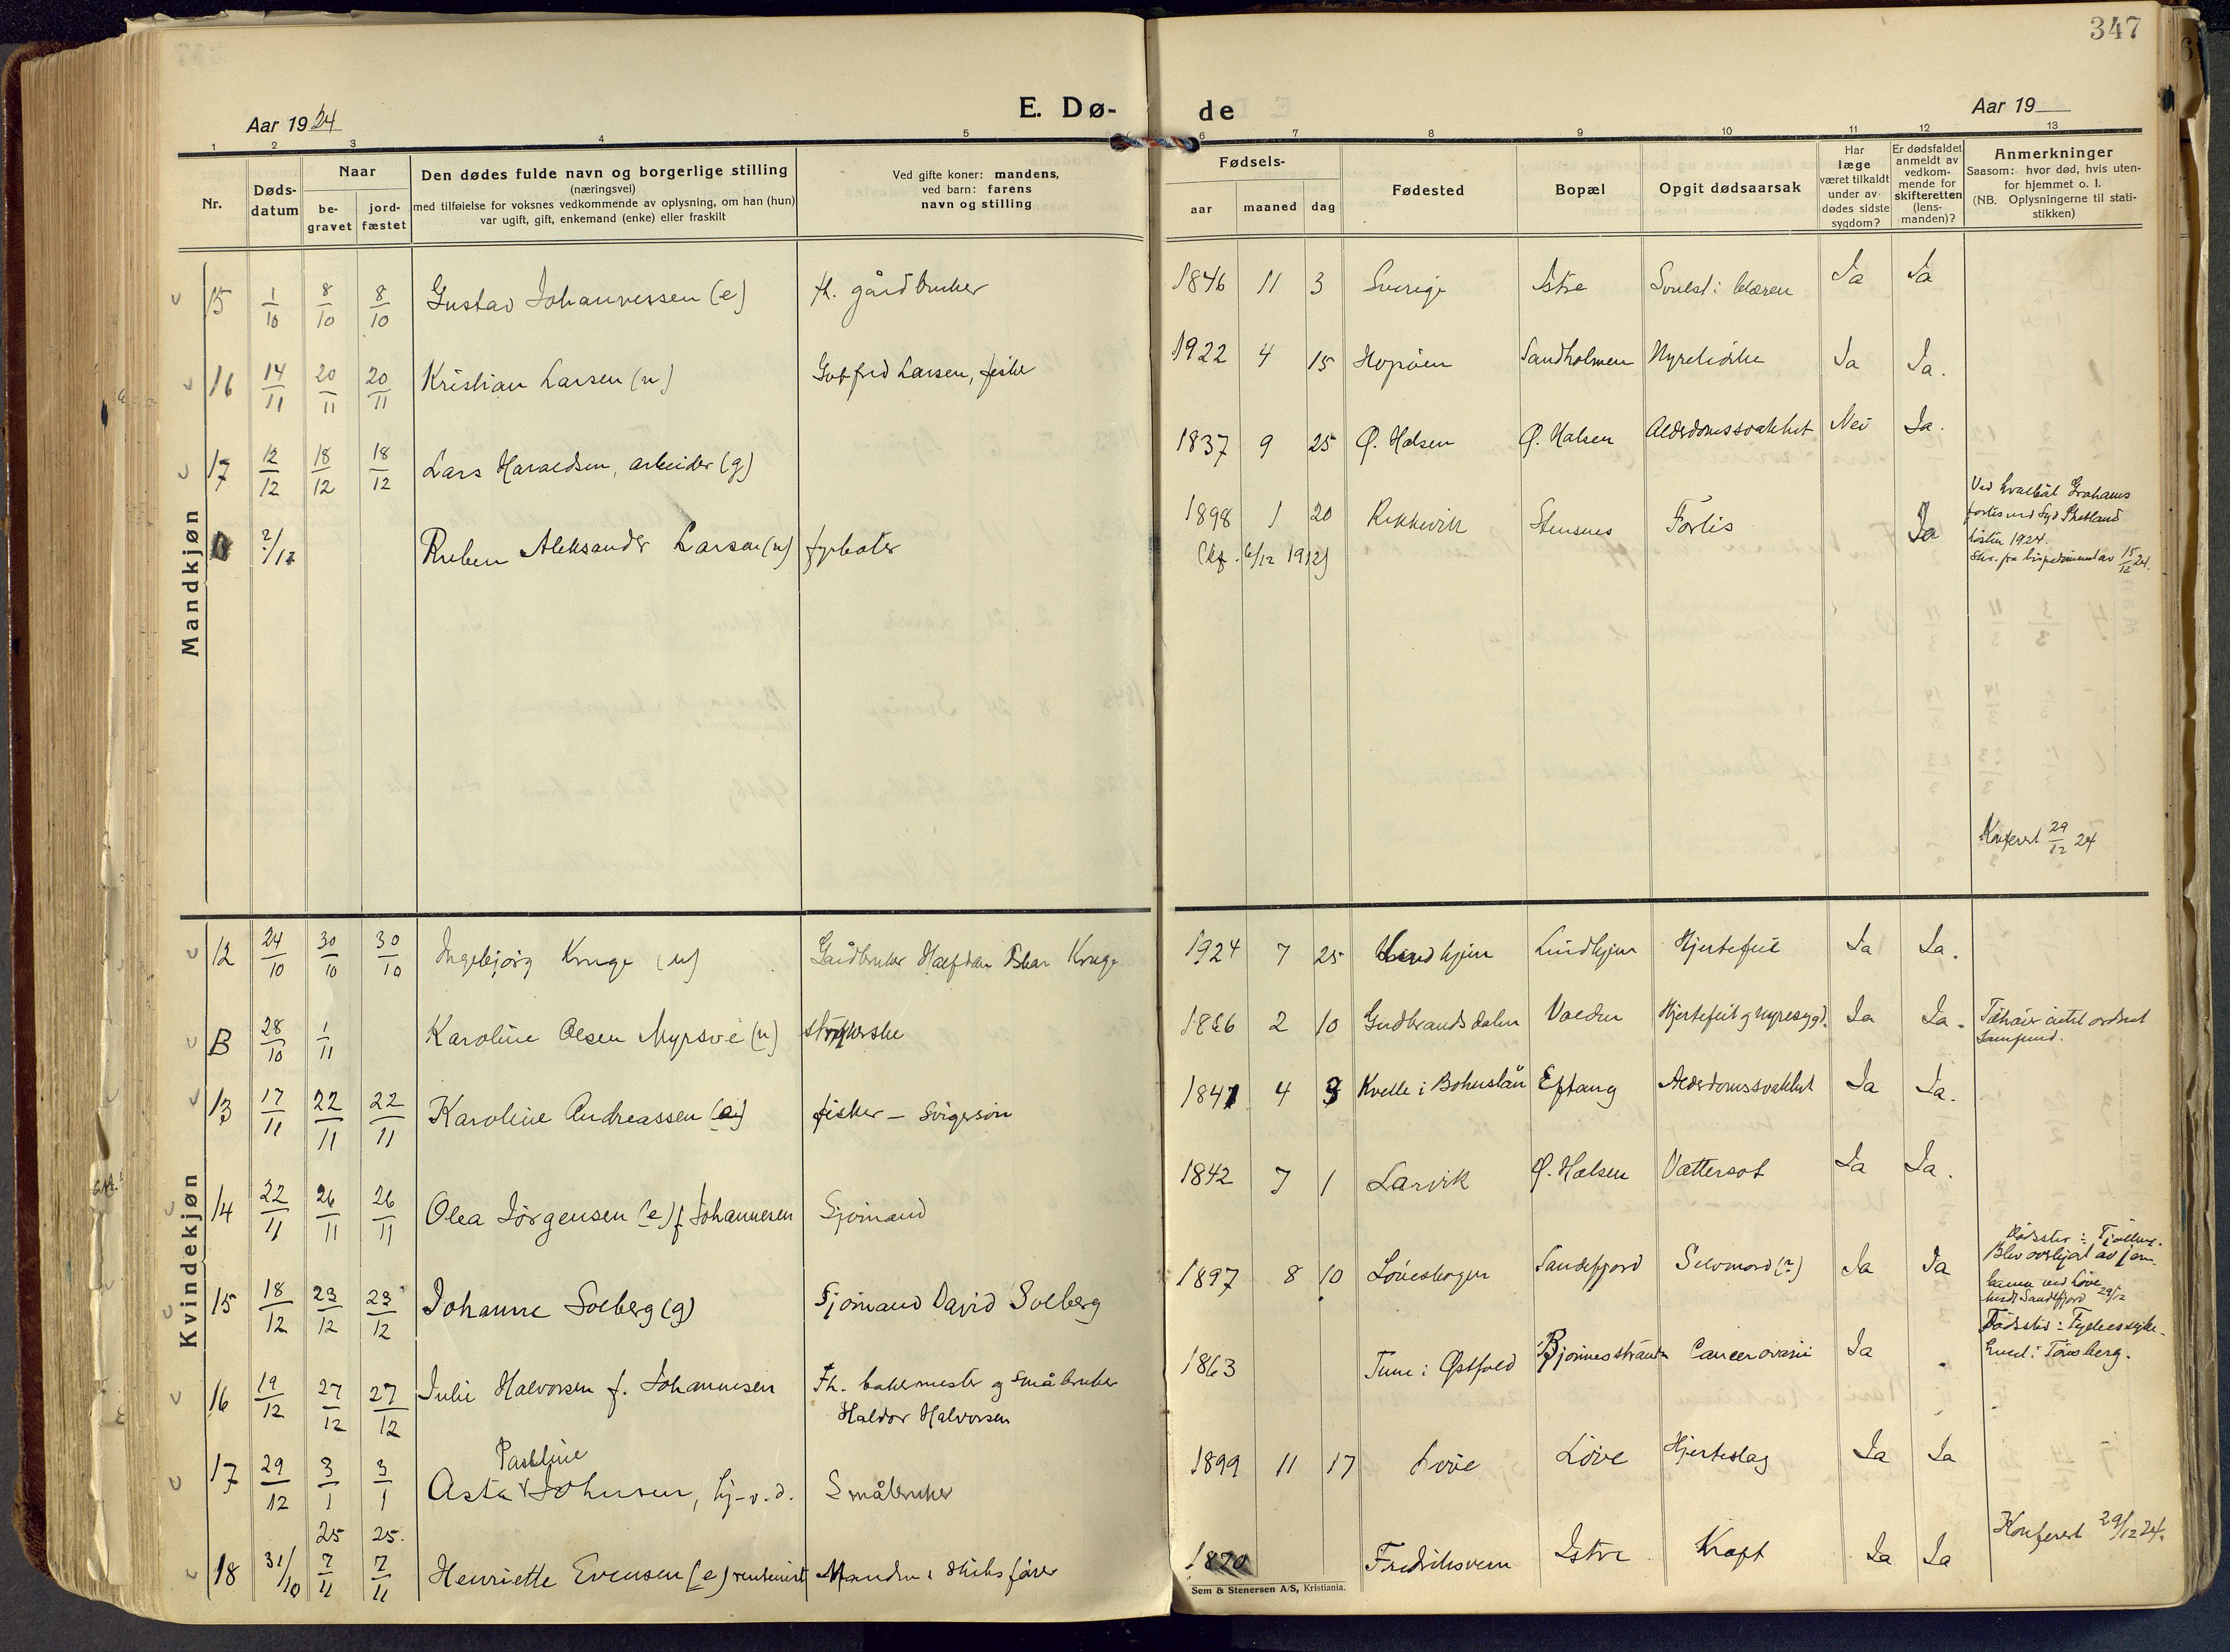 347
Aar 1924
E. Dø-
de
Aar 19
1 2 3 4 5 6 7 8 9 10 11 12 13
Nr.
Døds-
datum
Naar
be-
gravet
jord-
fæstet
Den dødes fulde navn og borgerlige stilling
(næringsvei)
med tilføielse for voksnes vedkommende av oplysning, om han (hun)
var ugift, gift, enkemand (enke) eller fraskilt
Ved gifte koner: mandens,
ved barn: farens
navn og stilling
Fødsels-
aar maaned dag
Fødested
Bopæl
Opgit dødsaarsak
Har
læge
været tilkaldt
under av-
dødes sidste
sygdom?
Er dødsfaldet
anmeldt av
vedkom-
mende for
skifteretten
(lens-
manden)?
Anmerkninger
Saasom: hvor død, hvis uten-
for hjemmet o. l.
(NB. Oplysningerne til stati-
stikken)
Mandkjøn
15 1/10 8/10 8/10 Gustav Johannessen (e) fh. gårdbruker 1846 11 3 Sverige Istre Svulst i blæren Ja Ja
16 14/11 20/11 20/11 Kristian Larsen (u) Gotfred Larsen, fisker 1922 4 15 Hopøen Sandholmen Nyrelidelse Ja Ja.
17 12/12 18/12 18/12 Lars Haraldsen, arbeider (g) 1837 9 25 Ø. Halsen Ø. Halsen Alderdomssvakhet Nei Ja.
?/12 Ruben Aleksander Larsen (u) fyrbøter 1898 1 20 Rekkevik Stensnes Forlis Ja
(kf. 6/12 1912)
Ved hvalbåt Grahams
forlis ved Syd Shetland
høsten 1924.
Skr. fra bispedømmet av 15/12 24.
Konferert 29/12 24
Kvindekjøn
12 24/10 30/10 30/10 Ingebjørg Kruge (u) Gårdbruker Halfdan Oskar Kruge 1924 7 25 Lindhjem Lindhjem Hjertefeil Ja Ja.
B 28/10 1/11 Karoline Olsen Myrsve (u) strykerske 1866 2 10 Gudbrandsdalen Valden Hjertefeil og nyresygd. Ja Ja. Tilhører intet ordnet
samfund.
13 17/11 22/11 22/11 Karoline Andreassen (e) fisker - Svigersøn 1841 4 3 Kvelle i Bohuslän Eftang Alderdomssvakhet Ja Ja.
14 22/11 26/11 26/11 Olea Jørgensen (e) f Johannesen Sjømand 1842 7 1 Larvik Ø. Halsen Vattersot Ja Ja.
15 18/12 23/12 23/12 Johanne Solberg (g) Sjømand David Solberg 1897 8 10 Løveskogen Sandefjord Selvmord (?) Ja Ja
Dødssted: Tjølling.
Blev overkjørt av jern-
banen ved Løve
bosat Sandefjord 29/12
16 19/12 27/12 27/12 Julie Halvorsen f. Johannesen Fh. bakermester og småbruker 1863 Tune i Østfold Bjønnesstranda Cancer ovarii Ja
Haldor Halvorsen
Dødssted: Fylkessyke-
huset i Tønsberg.
Pauline
17 29/12 3/1 3/1 Asta Johnsen, hj-v. d. Småbruker 1899 11 17 Løve Løve Hjerteslag Ja Ja
25 25.
18 31/10 7/11 7/11 Henriette Evensen (e) rentenist Manden: skibsfører 1870 Fredriksvern Istre Kræft Ja Ja
Konferert 29/12 24.
Sem & Stenersen A/S, Kristiania.